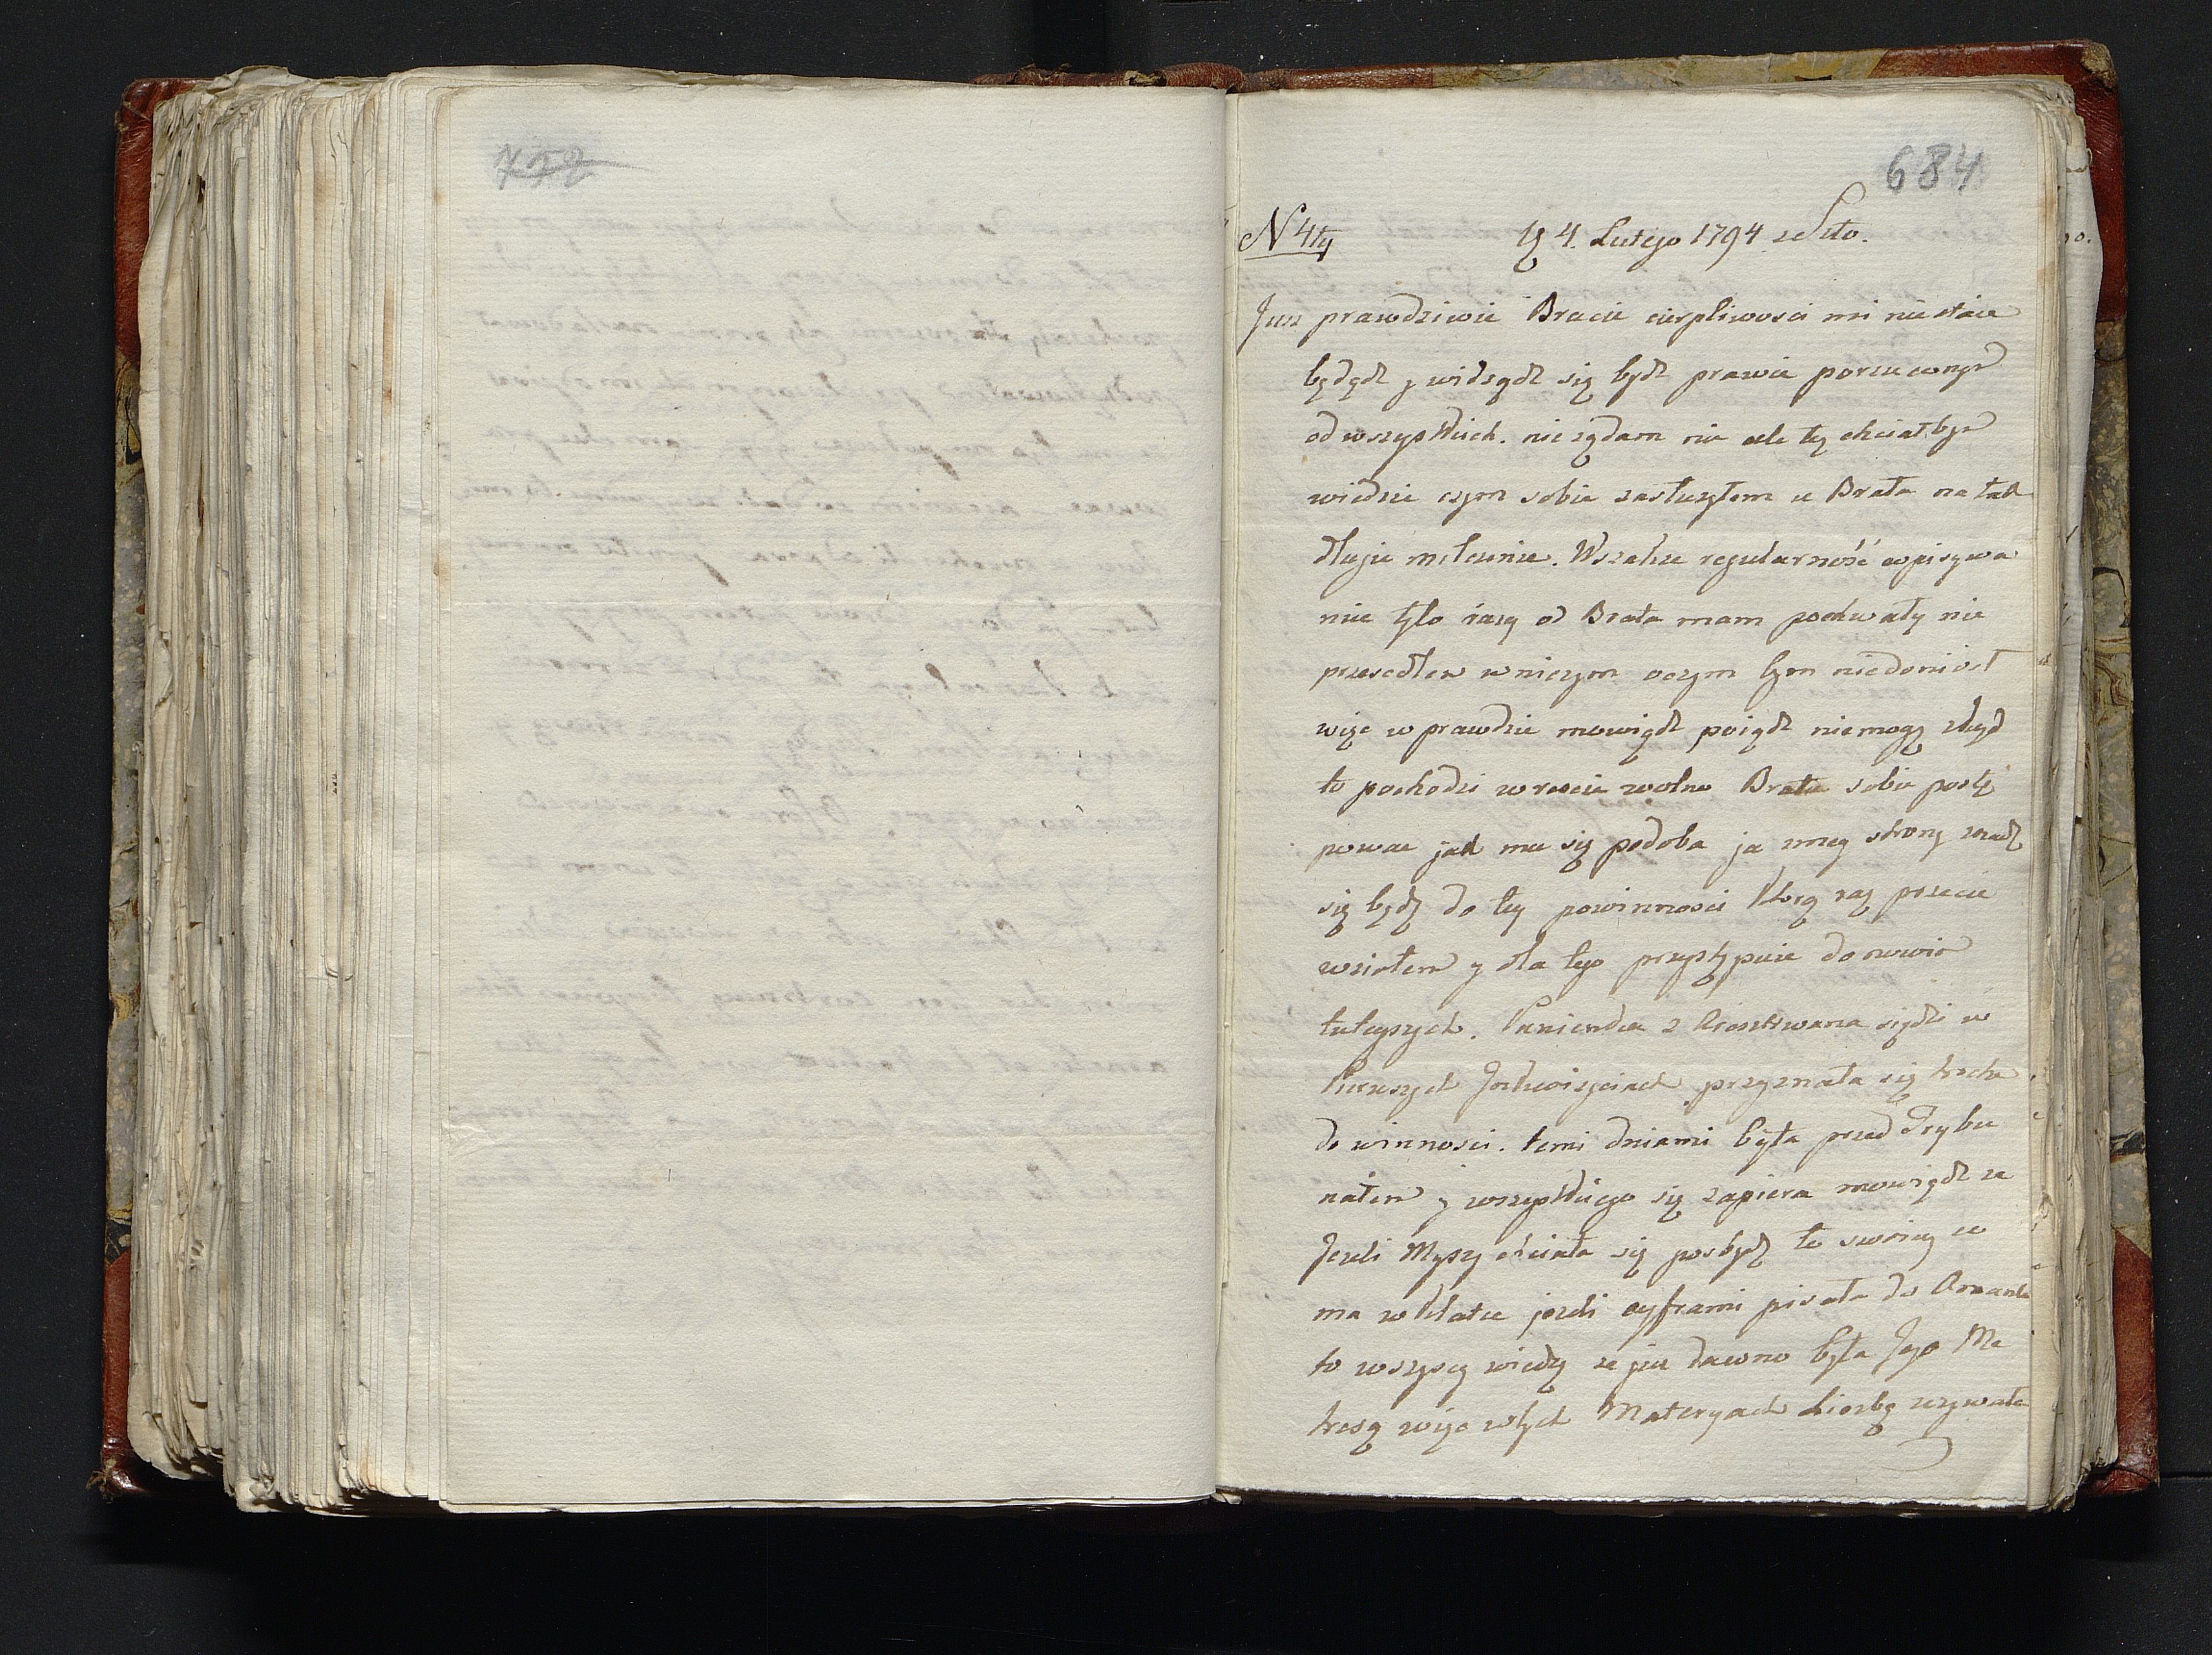 752
684
N 4ty
4. Lutego 1794 z Szto.
Juz prawdziwie Bracie cierpliwosci mi niestaie
będąc y widząc się bydz prawie porzuconym
od wszystkich. nie ządam nic ale tez chciałbym
wiedzie czym sobie zasłuzyłem u Brata na tak
długie milczenie. Wszakze regularność w pisywa
nie tylo razy od Brata mam pochwały nie
przeszedłem w niczym o czym bym niedoniosł
więc w prawdzie mowiąc poiąc niemogę zkąd
to pochodzi wrescie wolno Bratu sobie postę
powac jak mu się podoba ja z mey strony
się będę do tey powinnosci ktorą raz przecie
wziołem y dla tego przystępuie do nowin
tuteyszych. Panienka siędzi w
Pierszych przyznała się troche
do winnosci. temi dniami była przed Trybu
nałem y wszystkiego się zapiera mowiąc ze
Jezeli Myszy chciała się pozbydz to swoiey ce
ma w klatce jezeli cyframi pisała do
to wszyscy wiedzą ze juz dawno była Jego Me
tresą więc w tych Materyach Liczbą uzywała